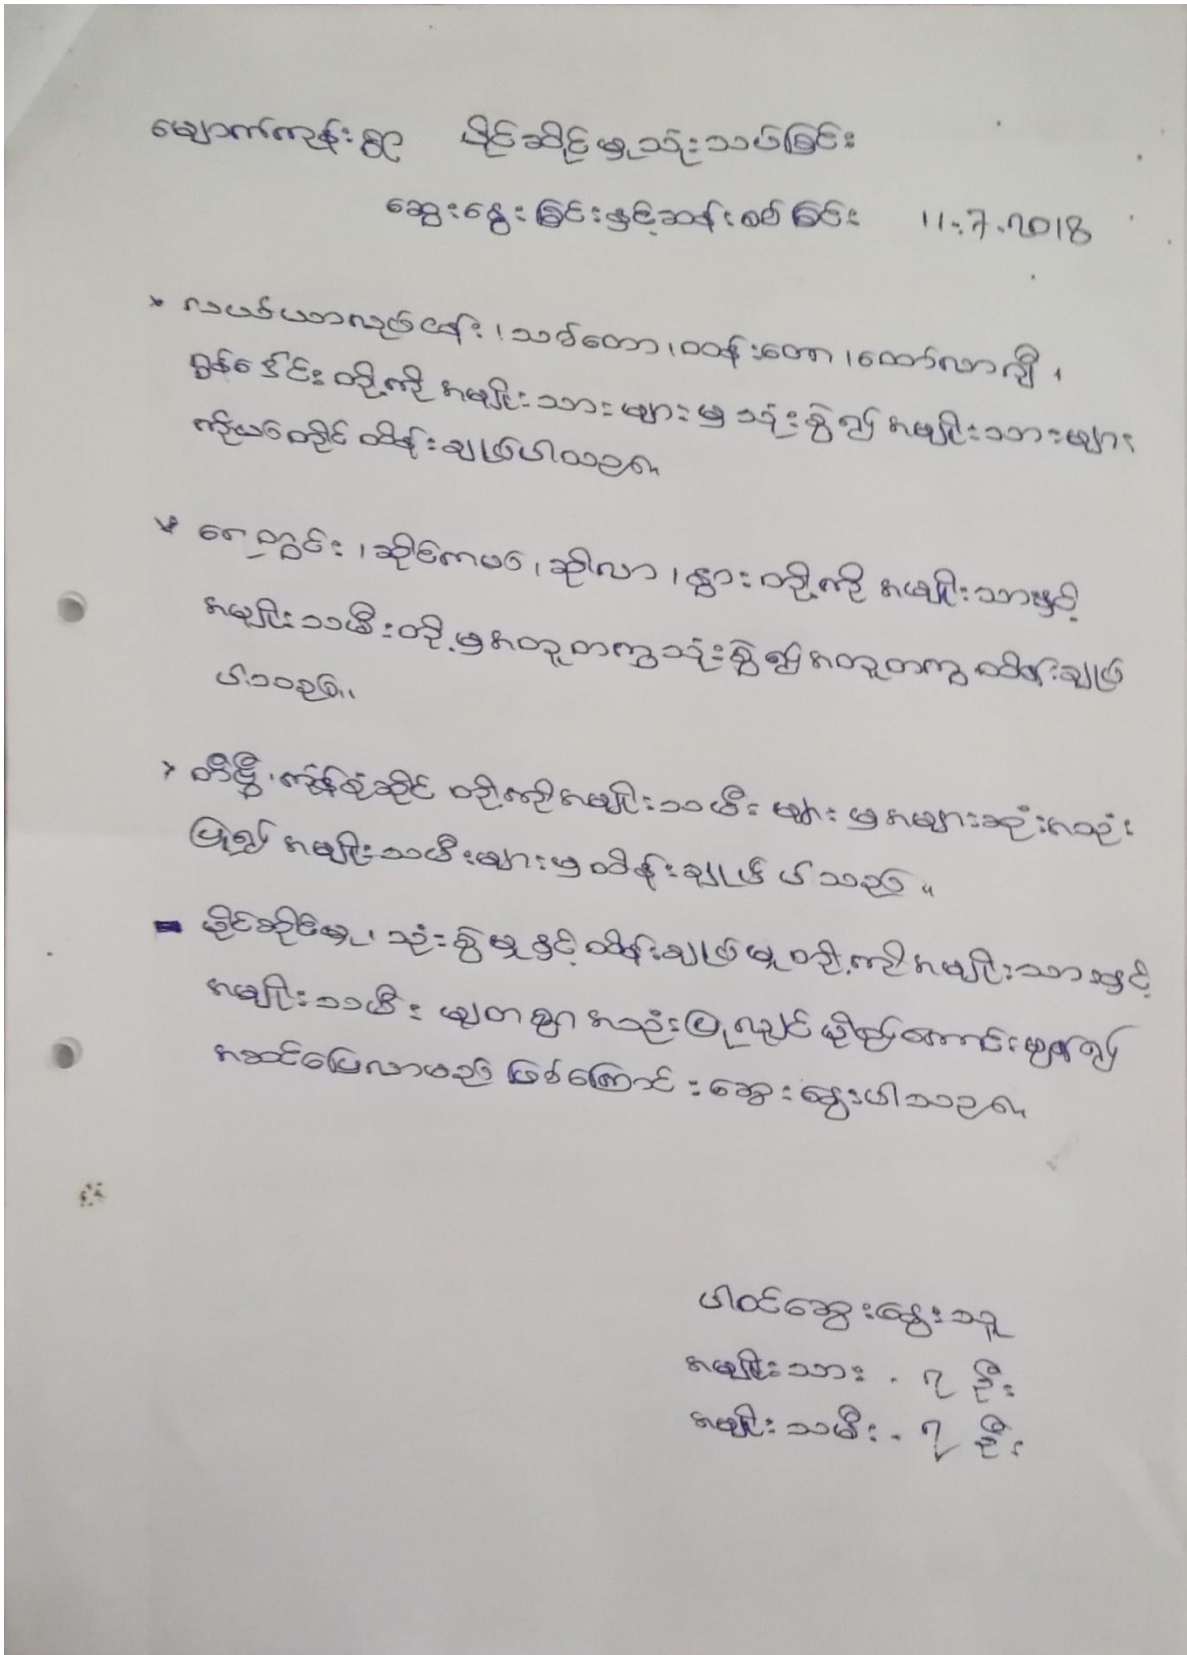 မျောက်ကုန်းရွာ ပိုင်ဆိုင်မှု့သုံးသပ်ခြင်း
ဆွေးနွေးခြင်းနှင့်ဆန်းစစ်ခြင်း 11.7.2018
* လယ်ယာလုပ်ငန်း၊သစ်တော၊ဝါးတော၊ထော်လာဂျီ၊
ထွန်ခြောင်း တို့ကို အမျိုးသားများမှ သုံးစွဲ၍ အမျိုးသားများ
ကိုယ်တိုင် ထိန်းချုပ်ပါသည်။
* ရေတွင်း၊ဆိုင်ကယ်၊ဆိုလာ၊နွားတို့ကို အမျိုးသားနှင့်
အမျိုးသမီးတို့မှအတူတကွသုံးစွဲ၍အတူတကွထိန်းချုပ်
ပါသည်။
> တီဗွီ၊ကုန်စုံဆိုင် တို့ကိုအမျိုးသမီးများမှအများဆုံးအသုံး
ပြု၍ အမျိုးသမီးများမှထိန်းချုပ်ပါသည်။
- ပိုင်ဆိုင်မှု့၊သုံးစွဲမှု့နှင့်ထိန်းချုပ်မှု့တို့ကိုအမျိုးသားနှင့်
အမျိုးသမီး မျှတစွာ အသုံးပြုလျှင် ပို၍ကောင်းမွန်၍
အဆင်ပြေလာမည် ဖြစ်ကြောင်းဆွေးနွေးပါသည်။
ပါဝင်ဆွေးနွေးသူ
အမျိုးသား - ၇ ဦး
အမျိုးသမီး - ၇ ဦး